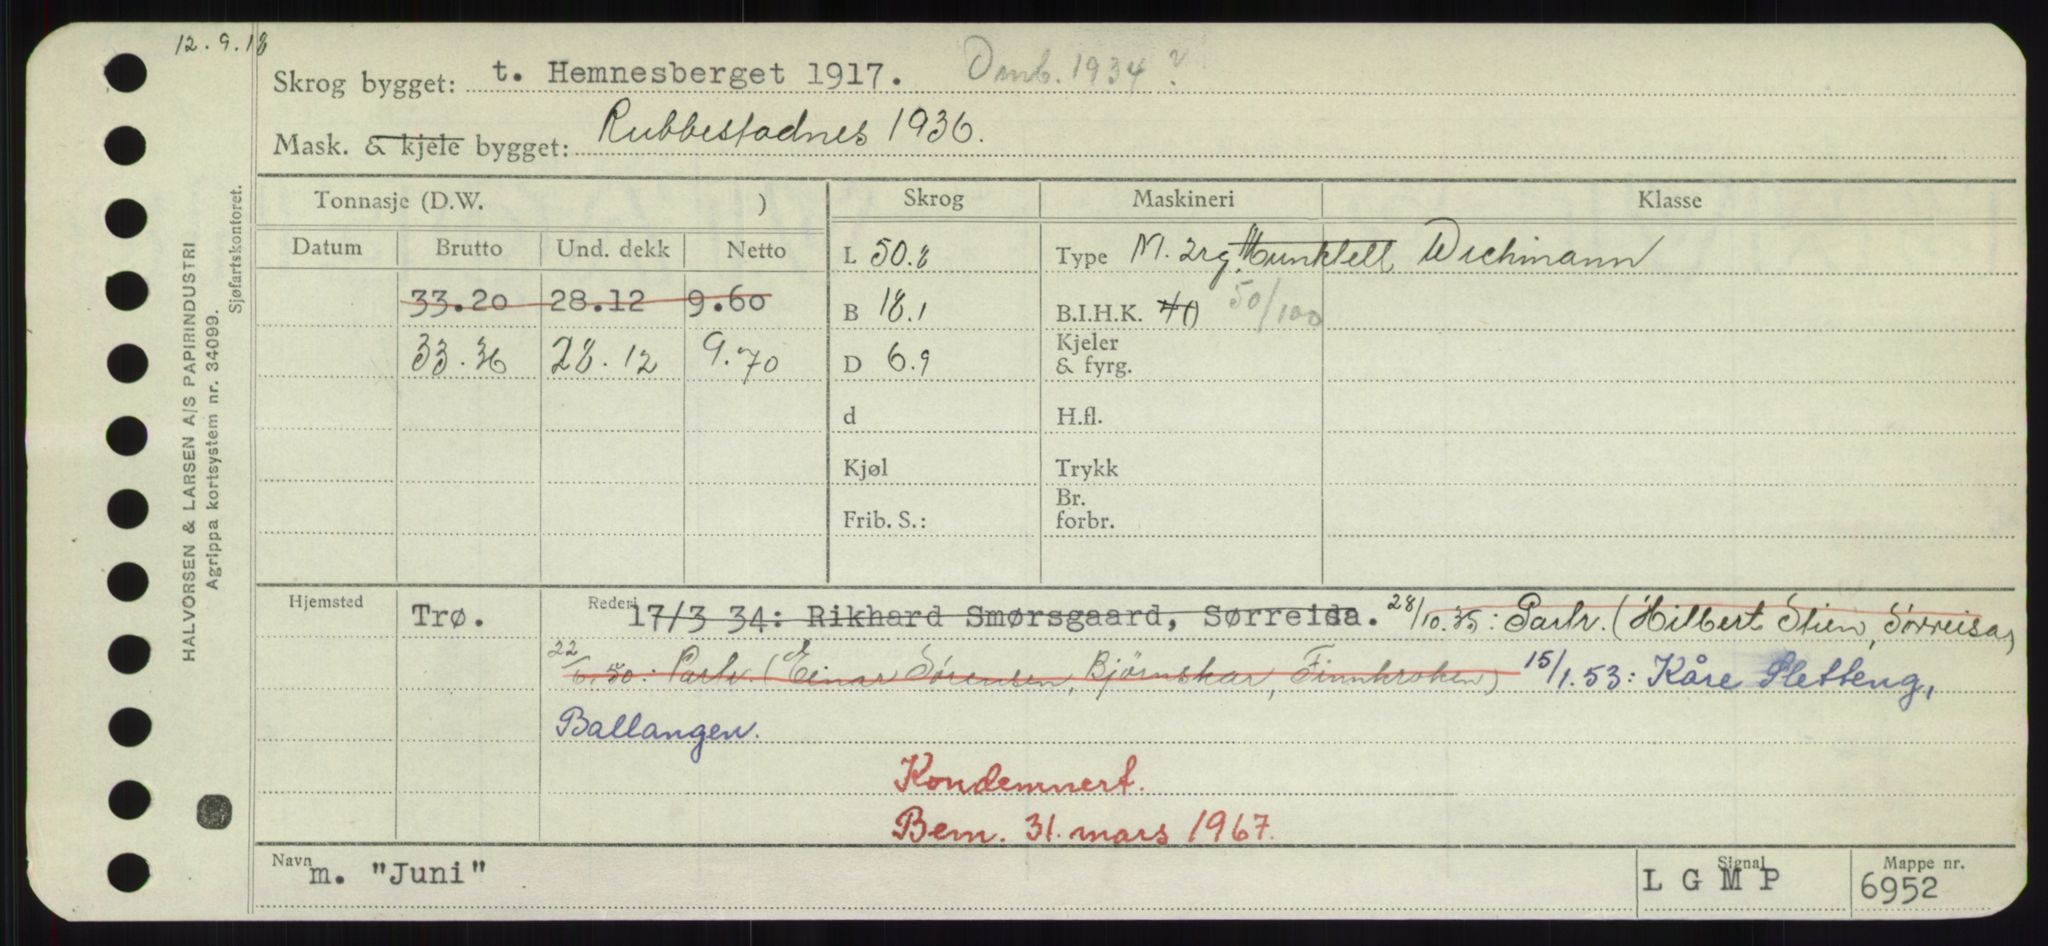 12.9.18
Skrog bygget: t. Hemnesberget 1917. Omb. 1934?
Mask. & kjele bygget: Rubbestadnes 1936.
Tonnasje (D.W. ) Skrog Maskineri Klasse
Datum Brutto Und. dekk Netto L 50.8 Type M. 2rg. Munktell Wichmann
33.20 28.12 9.60 B 18.1 B.I.H.K. 40 50/100
33.36 28.12 9.70 D 6.9 Kjeler & fyrg.
d H.fl.
Kjøl Trykk
Frib. S.: Br. forbr.
Hjemsted Trø. Rederi 17/3 34: Rikhard Smørsgaard, Sørreisa. 28/10.35: Partr. (Hilbert Stien, Sørreisa)
22/6.50: Partr. (Einar Sørensen, Bjørnskar, Finnkroken) 15/1.53: Kåre Sletteng,
Ballangen.
Kondemnert.
Bem. 31. mars 1967.
Navn m. "Juni" Signal L G M P Mappe nr. 6952
HALVORSEN & LARSEN A/S PAPIRINDUSTRI
Agrippa kortsystem nr. 34099.
Sjøfartskontoret.